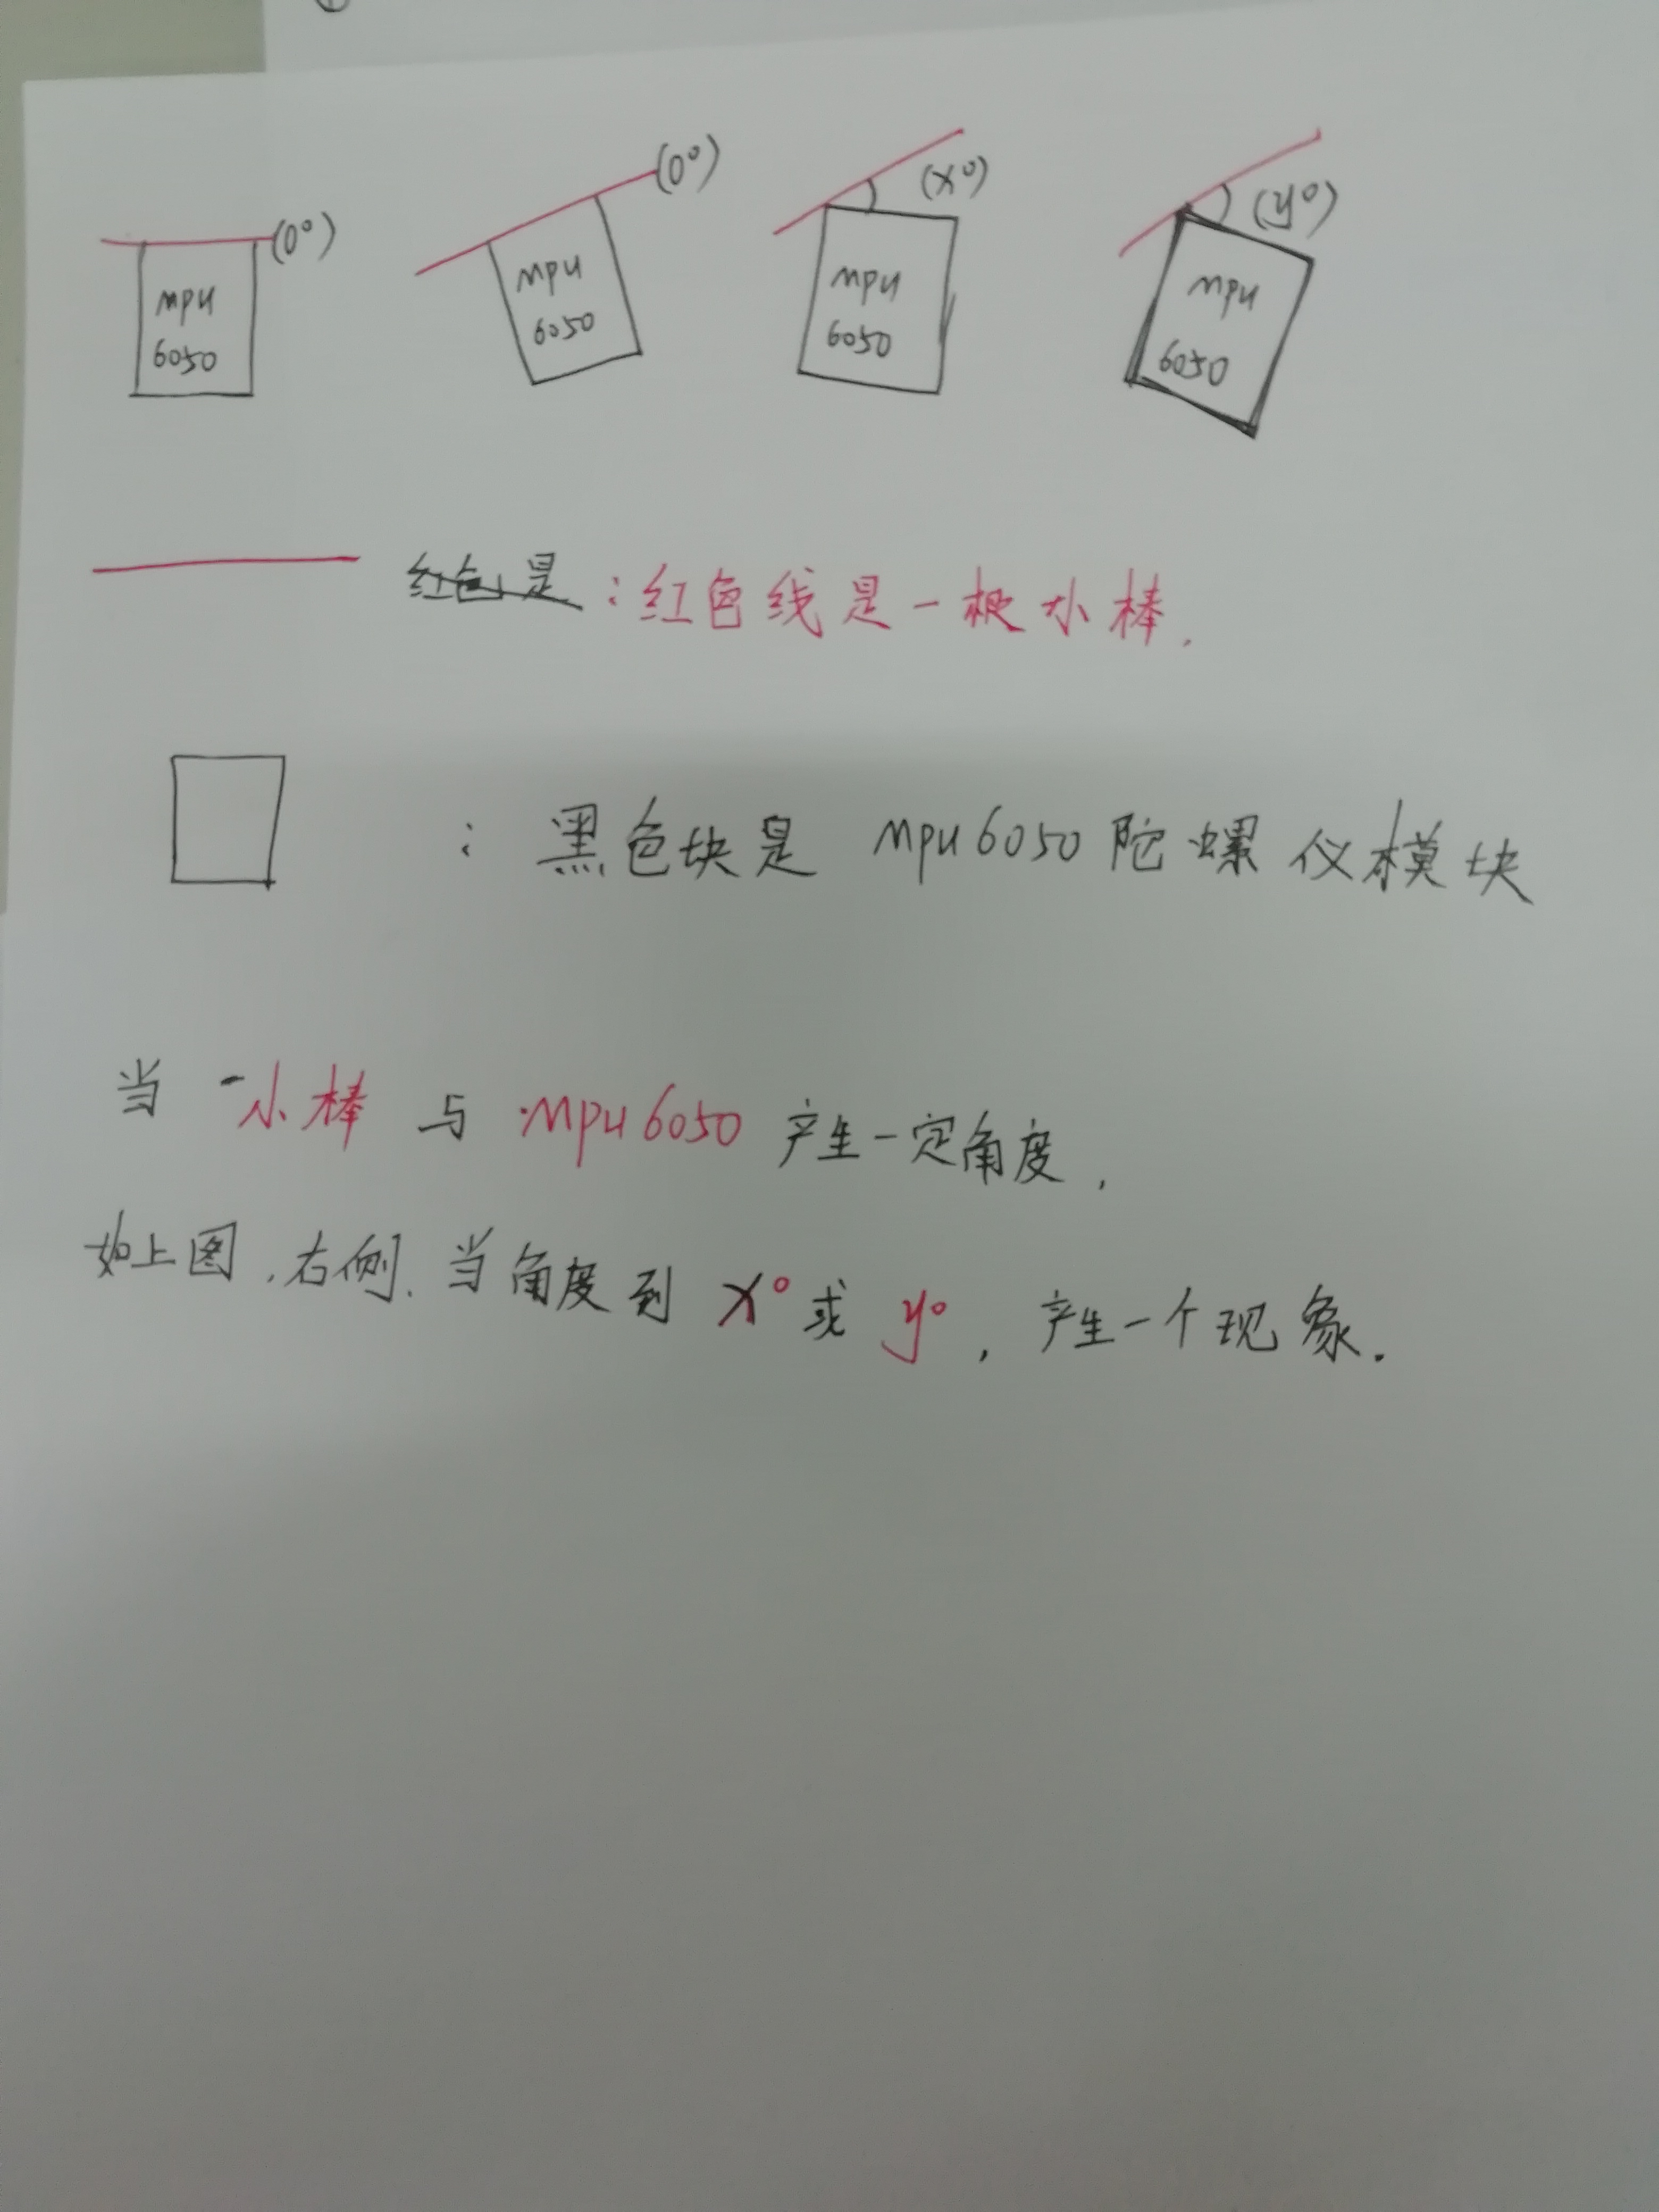 (0°)
(0°)
(x°)
(y°)
mpu
6050
mpu
6050
mpu
6050
mpu
6050
红色是:红色线是一根小棒.
:黑色块是 mpu6050陀螺仪模块
当 小棒 与 mpu6050 产生一定角度,
如上图,右侧.当角度到 x°或 y°, 产生一个现象.